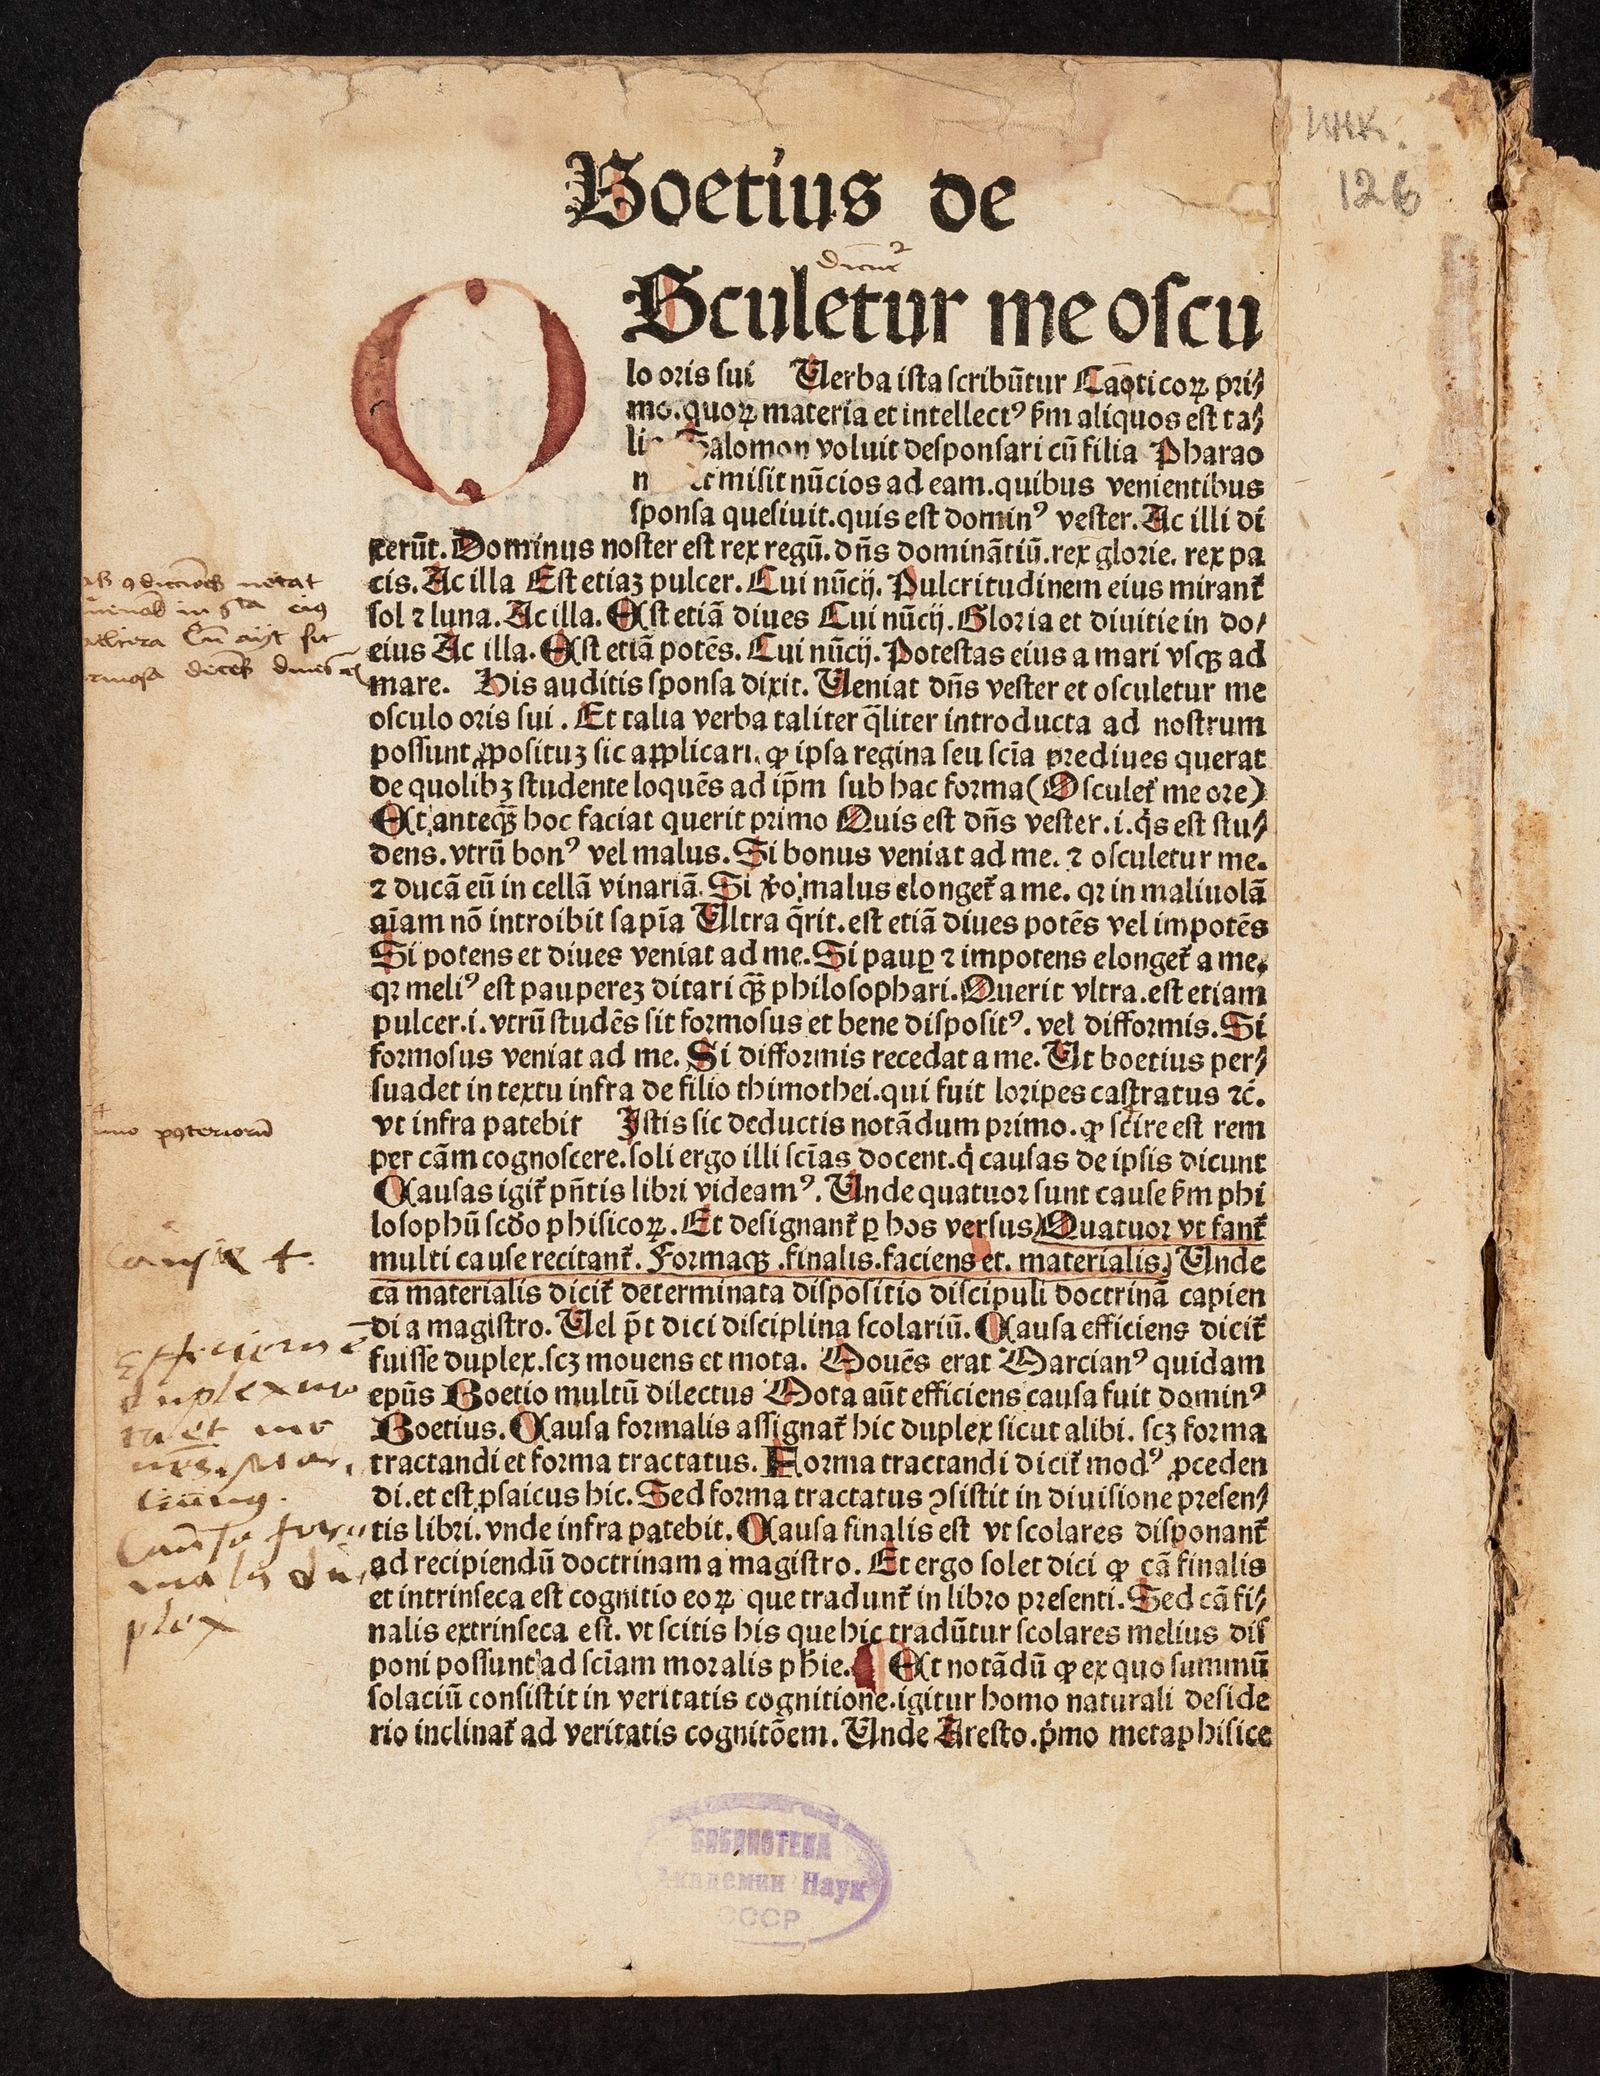 инк.
126
Boetius de
dicitur
OSculetur me oscu
lo oris sui Uerba ista scribūtur Cāoticoꝝ pri⸗
mo. quoꝝ materia et intellectꝰ ẜm aliquos est ta⸗
Salomon voluit desponsari cū filia Pharao
misit nūcios ad eam. quibus venientibus
sponsa quesiuit. quis est dominꝰ vester. Ac illi di
xerūt. Dominus noster est rex regū. dn̄s domināntiū. rex glorie. rex pa
cis. Ac illa Est etiaꝫ pulcer. Cui nūcij. Pulcritudinem eius mirant᷑
sol ⁊ luna. Ac illa. Est etiā diues Cui nūcij. Gloria et diuitie in do⸗
eius Ac illa. Est etiā potēs. Cui nūcij. Potestas eius a mari vsqꝫ ad
mare. His auditis sponsa dixit. Ueniat dn̄s vester et osculetur me
osculo oris sui. Et talia verba taliter q̄liter introducta ad nostrum
possunt ꝓpositūꝫ sic applicari. ꝙ ipsa regina seu scīa prediues querat
de quolibꝫ studente loquēs ad ip̄m sub hac forma (Osculet᷑ me ore)
Et anteqꝫ̄ hoc faciat querit primo Quis est dn̄s vester. i. q̇s est stu⸗
dens. vtrū bonꝰ vel malus. Si bonus veniat ad me. ⁊ osculetur me.
⁊ ducā eū in cellā vinariā. Si v̊o malus elonget᷑ a me. qꝛ in maliuolā
aīam nō introibit sapīa Ultra q̄rit. est etiā diues potēs vel impotēs
Si potens et diues veniat ad me. Si paup̱ ⁊ impotens elonget᷑ a me.
qꝛ meliꝰ est paupereꝫ ditari qꝫ̄ philosophari. Querit vltra. est etiam
pulcer. i. vtrū studēs sit formosus et bene dispositꝰ. vel difformis. Si
formosus veniat ad me. Si difformis recedat a me. Ut boetius per⸗
suadet in textu infra de filio thimothei. qui fuit loripes castratus ⁊c̄.
vt infra patebit Istis sic deductis notādum primo. ꝙ scire est rem
per cām cognoscere. soli ergo illi scīas docent. q̇ causas de ipsis dicunt
Causas igit᷑ pn̄tis libri videamꝰ. Unde quatuor sunt cause ẜm phi
losophū scd̄o phisicoꝝ. Et designant᷑ ꝑ hos versus) Quatuor vt fant᷑
multi cause recitant᷑. Formaqꝫ. finalis. faciens et. materialis.) Unde
cā materialis dicit᷑ determinata dispositio discipuli doctrinā capien
di a magistro. Uel p̄t dici disciplina scolariū. Causa efficiens dicit᷑
fuisse duplex. scꝫ mouens et mota. Mouēs erat Marcianꝰ quidam
epūs Boetio multū dilectus Mota aūt efficiens causa fuit dominꝰ
Boetius. Causa formalis assignat᷑ hic duplex sicut alibi. scꝫ forma
tractandi et forma tractatus. Forma tractandi dicit᷑ modꝰ ꝓceden
di. et est ꝓsaicus hic. Sed forma tractatus ꝯsistit in diuisione presen⸗
tis libri. vnde infra patebit. Causa finalis est vt scolares disponant᷑
ad recipiendū doctrinam a magistro. Et ergo solet dici ꝙ cā finalis
et intrinseca est cognitio eoꝝ que tradunt᷑ in libro presenti. Sed cā fi⸗
nalis extrinseca est. vt scitis his que hic tradūtur scolares melius dis
poni possunt ad scīam moralis phīe. Et notādū ꝙ ex quo summū
solaciū consistit in veritatis cognitione. igitur homo naturali deside
rio inclinat᷑ ad veritatis cognitōem. Unde Aresto. p̄mo metaphisice
posteriorū
Causae 4.
Efficiens
duplex mo
ta et mo
Causa for
malis du
plex
БИБЛИОТЕКА
Академии Наук
СССР